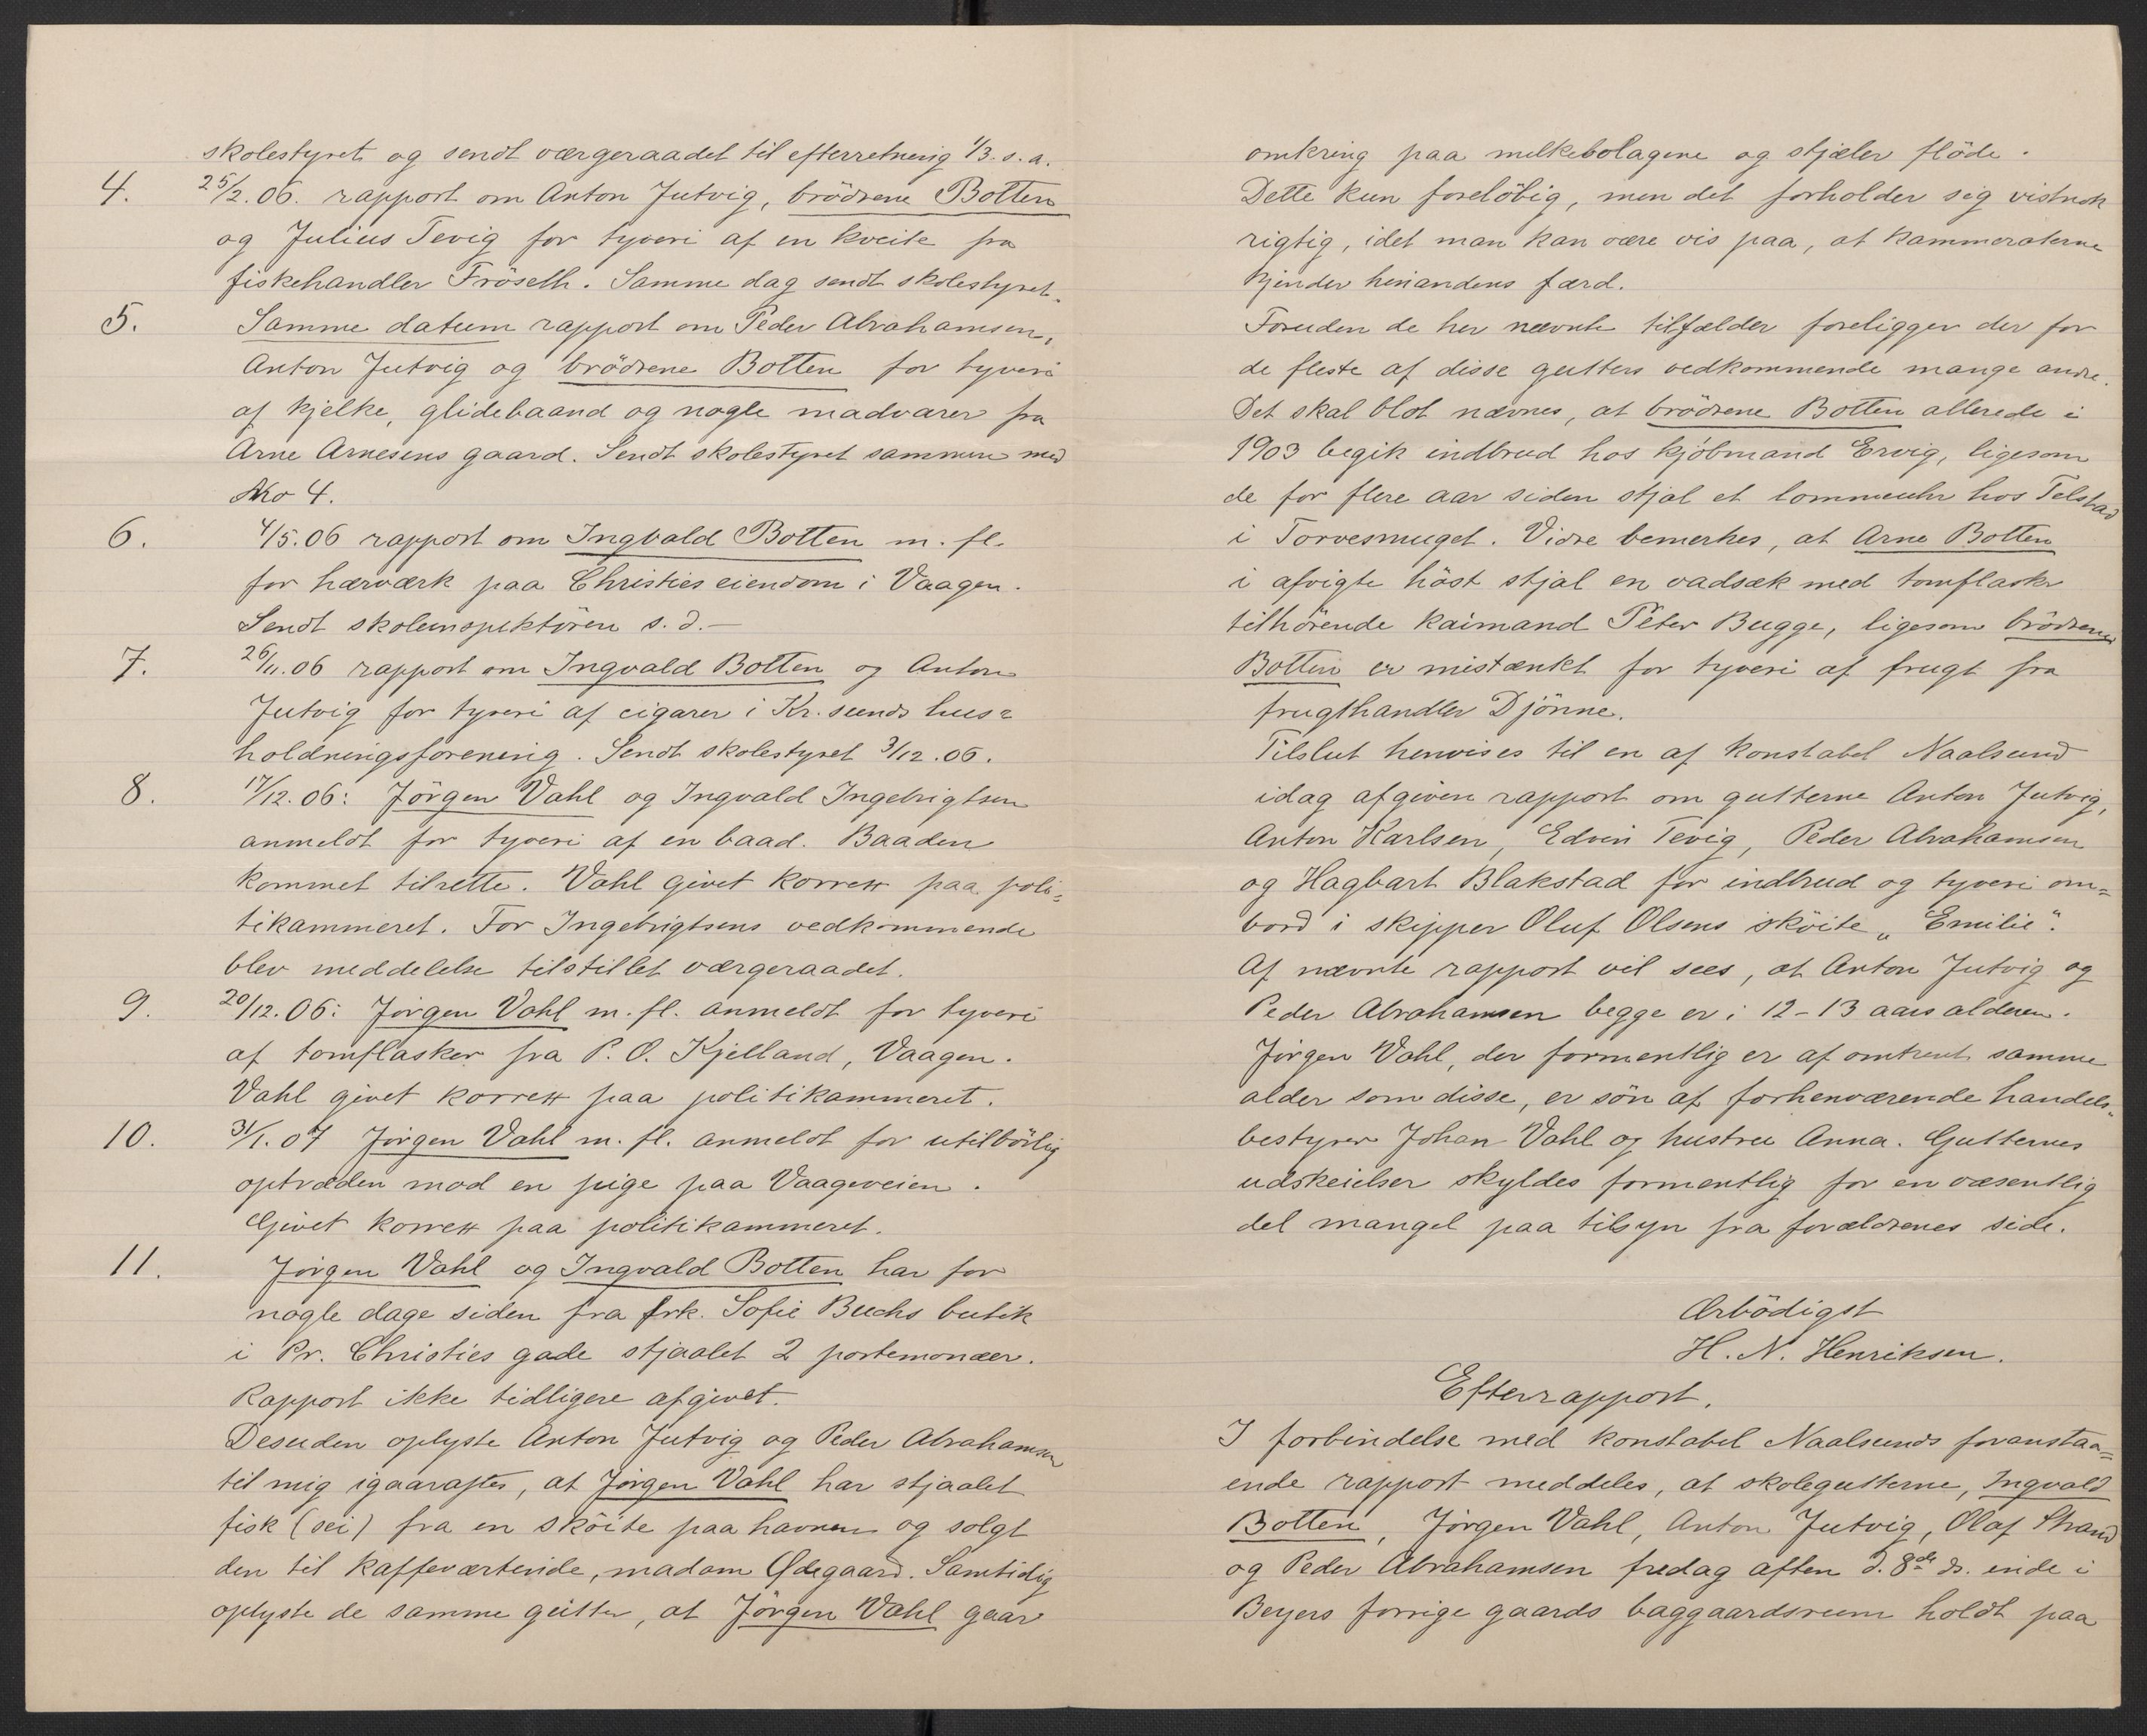 skolestyret og sendt værgeraadet til efterretning 1/3. s. a.
4. 25/2.06. rapport om Anton Jutvig, brödrene Botten
og Julius Tevig for tyveri af en kveite fra
fiskehandler Fröseth. Samme dag sendt skolestyret.
5. Samme datum rapport om Peder Abrahamsen,
Anton Jutvig og brödrene Botten for tyveri
af kjelke, glidebaand og nogle madvarer fra
Arne Arnesens gaard. Sendt skolestyret sammen med
No 4.
6. 4/5.06 rapport om Ingvald Botten m. fl.
for hærværk paa Christies eiendom i Vaagen.
Sendt skoleinspektören s. d. —
7. 26/11.06 rapport om Ingvald Botten og Anton
Jutvig for tyveri af cigarer i Kr. sunds hus=
holdningsforening. Sendt skolestyret 3/12.06.
8. 17/12.06: Jörgen Vahl og Ingvald Ingebrigtsen
anmeldt for tyveri af en baad. Baaden
kommet tilrette. Vahl givet korrex paa poli=
tikammeret. For Ingebrigtsens vedkommende
blev meddelelse tilstillet værgeraadet.
9. 20/12.06: Jörgen Vahl m. fl. anmeldt for tyveri
af tomflasker fra P. O. Kjelland, Vaagen.
Vahl givet korrex paa politikammeret.
10. 31/1.07 Jörgen Vahl m. fl. anmeldt for utilbörlig
optræden mod en pige paa Vaageveien.
Givet korrex paa politikammeret.
11. Jörgen Vahl og Ingvald Botten har for
nogle dage siden fra frk. Sofie Buchs butik
i Pr. Christies gade stjaalet 2 portemonæer.
Rapport ikke tidligere afgivet.
Desuden oplyste Anton Jutvig og Peder Abrahamsen
til mig igaaraftes, at Jörgen Vahl har stjaalet
fisk (sei) fra en sköite paa havnen og solgt
den til kaffeværtinde, madam Ødegaard. Samtidig
oplyste de samme gutter, at Jörgen Vahl gaar
omkring paa melkebolagene og stjæler flöde.
Dette kun forelöbig, men det forholder sig vistnok
rigtig, idet man kan være vis paa, at kammeraterne
kjender hinandens færd.
Foruden de her nævnte tilfælder foreligger der for
de fleste af disse gutters vedkommende mange andre.
Det skal blot nævnes, at brödrene Botten allerede i
1903 begik indbrud hos kjöbmand Ervig, ligesom
de for flere aar siden stjal et lommeuhr hos Telstad
i Torvesmuget. Vidre bemerkes, at Arne Botten
i afvigte höst stjal en vadsæk med tomflasker
tilhörende kaimand Peter Bugge, ligesom brödrene
Botten er mistænkt for tyveri af frugt fra
frugthandler Djönne.
Tilslut henvises til en af konstabel Naalsund
idag afgiven rapport om gutterne Anton Jutvig,
Anton Karlsen, Edvin Tevig, Peder Abrahamsen
og Hagbart Blakstad for indbrud og tyveri om=
bord i skipper Oluf Olsens sköite „Emilie“.
Af nævnte rapport vil sees, at Anton Jutvig og
Peder Abrahamsen begge er i 12 – 13 aars alderen.
Jörgen Vahl, der formentlig er af omtrent samme
alder som disse, er sön af forhenværende handels=
bestyrer Johan Vahl og hustru Anna. Gutternes
udskeielser skyldes formentlig for en væsentlig
del mangel paa tilsyn fra forældrenes side.
Ærbödigst
H. N. Henriksen.
Efterrapport.
I forbindelse med konstabel Naalsunds foranstaa=
ende rapport meddeles, at skolegutterne, Ingvald
Botten, Jörgen Vahl, Anton Jutvig, Olaf Strand
og Peder Abrahamsen fredag aften d. 8de ds. inde i
Beyers forrige gaards baggaardsrum holdt paa